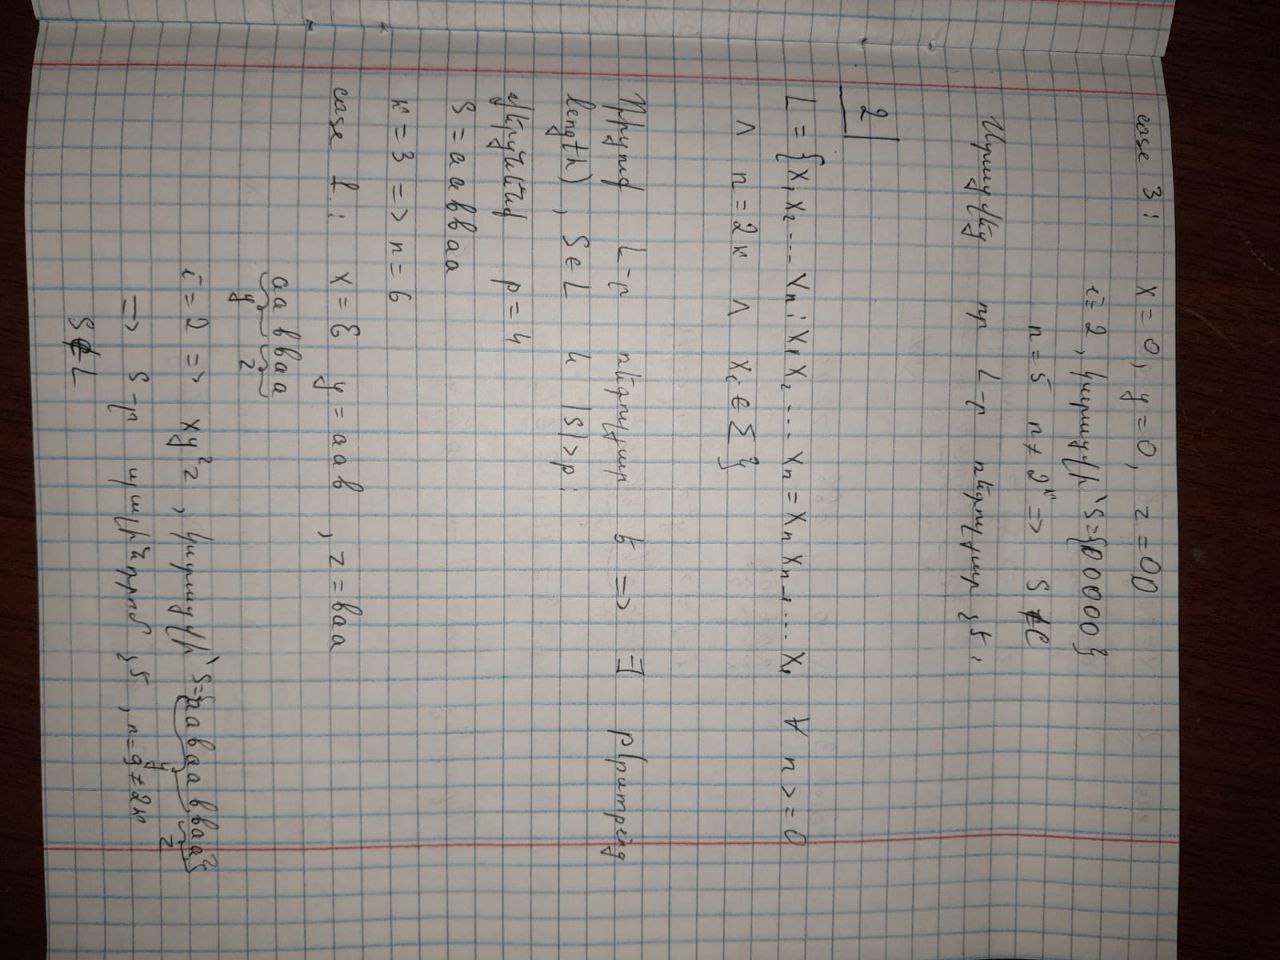 case 3: x = 0, y = 0, z = 00
i = 2, կստացվի՝ S={00000}
n = 5 n ≠ 2ᵏ => S ∉ L
Ստացվեց որ L-ը ռեգուլյար չէ:
2
L = {x₁ x₂ ... xₙ : x₁ x₂ ... xₙ = xₙ xₙ₋₁ ... x₁ ∀ n >= 0
∧ n = 2k ∧ xᵢ ∈ Σ}
Դիցուք L-ը ռեգուլյար է => ∃ p(pumping
length), S ∈ L և |S| > p:
Վերցնենք p = 4
S = aabbaa
k = 3 => n = 6
case 1: x = ε y = aab, z = baa
aabbaa
y z
i = 2 => xy²z, կստացվի՝ S={aabaabbaa}
y z
=> S-ը պալինդրոմ չէ, n=9≠2k
S ∉ L